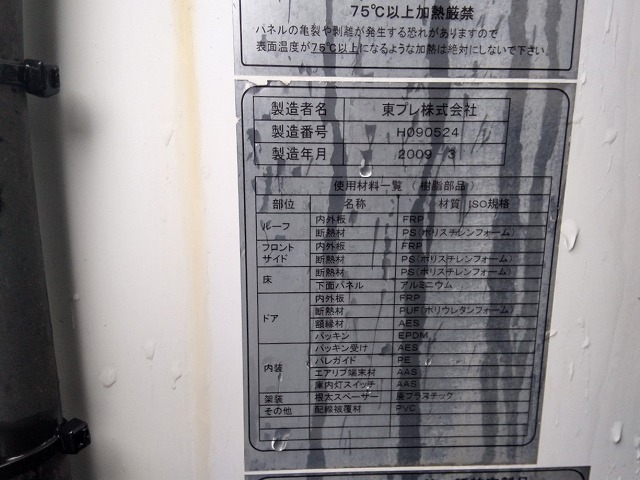 75℃以上加熱厳禁
パネルの亀裂や剥離が発生する恐れがありますので
表面温度が75℃以上になるような加熱は絶対にしないで下さい
製造者名 東プレ株式会社
製造番号 H090524
製造年月 2009 3
使用材料一覧 (樹脂部品)
部位 名称 材質 ISO規格
ルーフ 内外板 FRP
断熱材 PS(ポリスチレンフォーム)
フロント サイド 内外板 FRP
断熱材 PS(ポリスチレンフォーム)
床 断熱材 PS(ポリスチレンフォーム)
下面パネル アルミニウム
ドア 内外板 FRP
断熱材 PUF(ポリウレタンフォーム)
額縁材 AES
パッキン EPDM
内装 パッキン受け AES
バレガイド PE
エアリブ端末材 AAS
庫内灯スイッチ AAS
架装 根太スペーサー 廃プラスチック
その他 配線被覆材 PVC